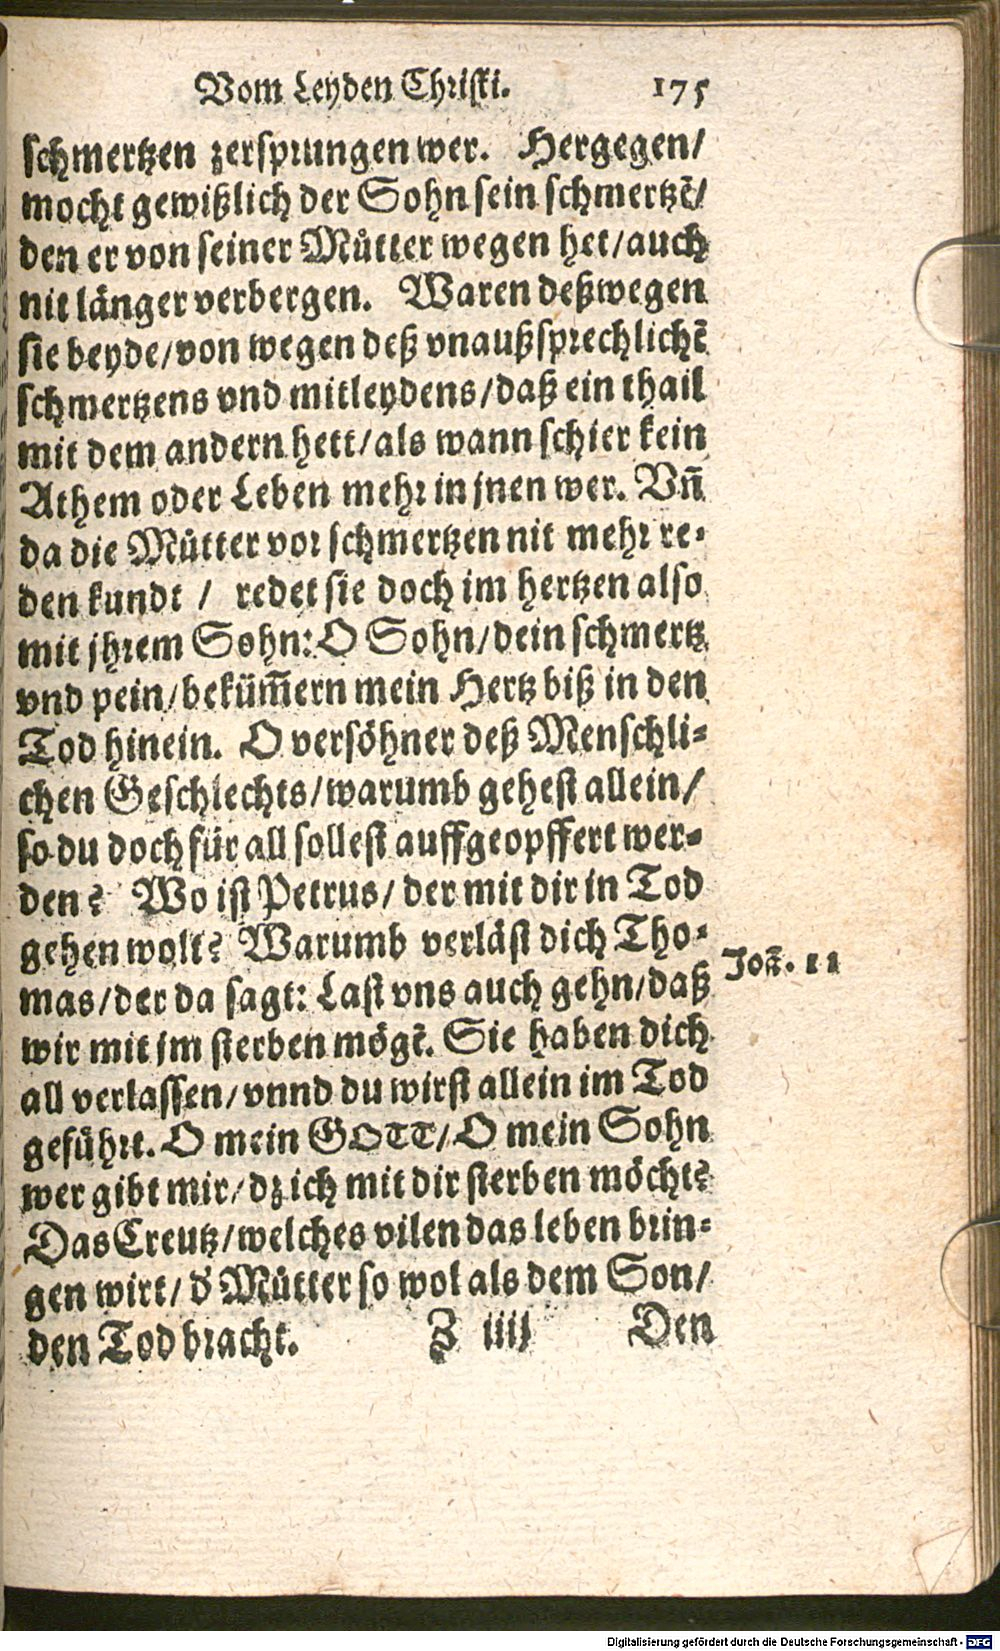 Vom Leyden Christi. 175
schmertzen zersprungen wer. Hergegen/
mocht gewißlich der Sohn sein schmertzē/
den er von seiner Můtter wegen het/auch
nit länger verbergen. Waren deßwegen
sie beyde/von wegen deß vnaußsprechlichē
schmertzens vnd mitleydens/daß ein thail
mit dem andern hett/als wann schier kein
Athem oder Leben mehr in jnen wer. Vn̄
da die Můtter vor schmertzen nit mehr re-
den kundt / redet sie doch im hertzen also
mit jhrem Sohn: O Sohn/dein schmertz
vnd pein/beküm̄ern mein Hertz biß in den
Tod hinein. O versöhner deß Menschli-
chen Geschlechts/warumb gehest allein/
so du doch für all sollest auffgeopffert wer-
den? Wo ist Petrus/ der mit dir in Tod
gehen wolt? Warumb verläst dich Tho-
mas/der da sagt: Last vns auch gehn/daß
Joā. 11
wir mit jm sterben mögē. Sie haben dich
all verlassen/vnnd du wirst allein im Tod
geführt. O mein GOTT/O mein Sohn
wer gibt mir/dz ich mit dir sterben möcht?
Das Creutz/welches vilen das leben brin-
gen wirt/ d' Můtter so wol als dem Son/
den Tod bracht. Z iiij Den
Digitalisierung gefördert durch die Deutsche Forschungsgemeinschaft - DFG